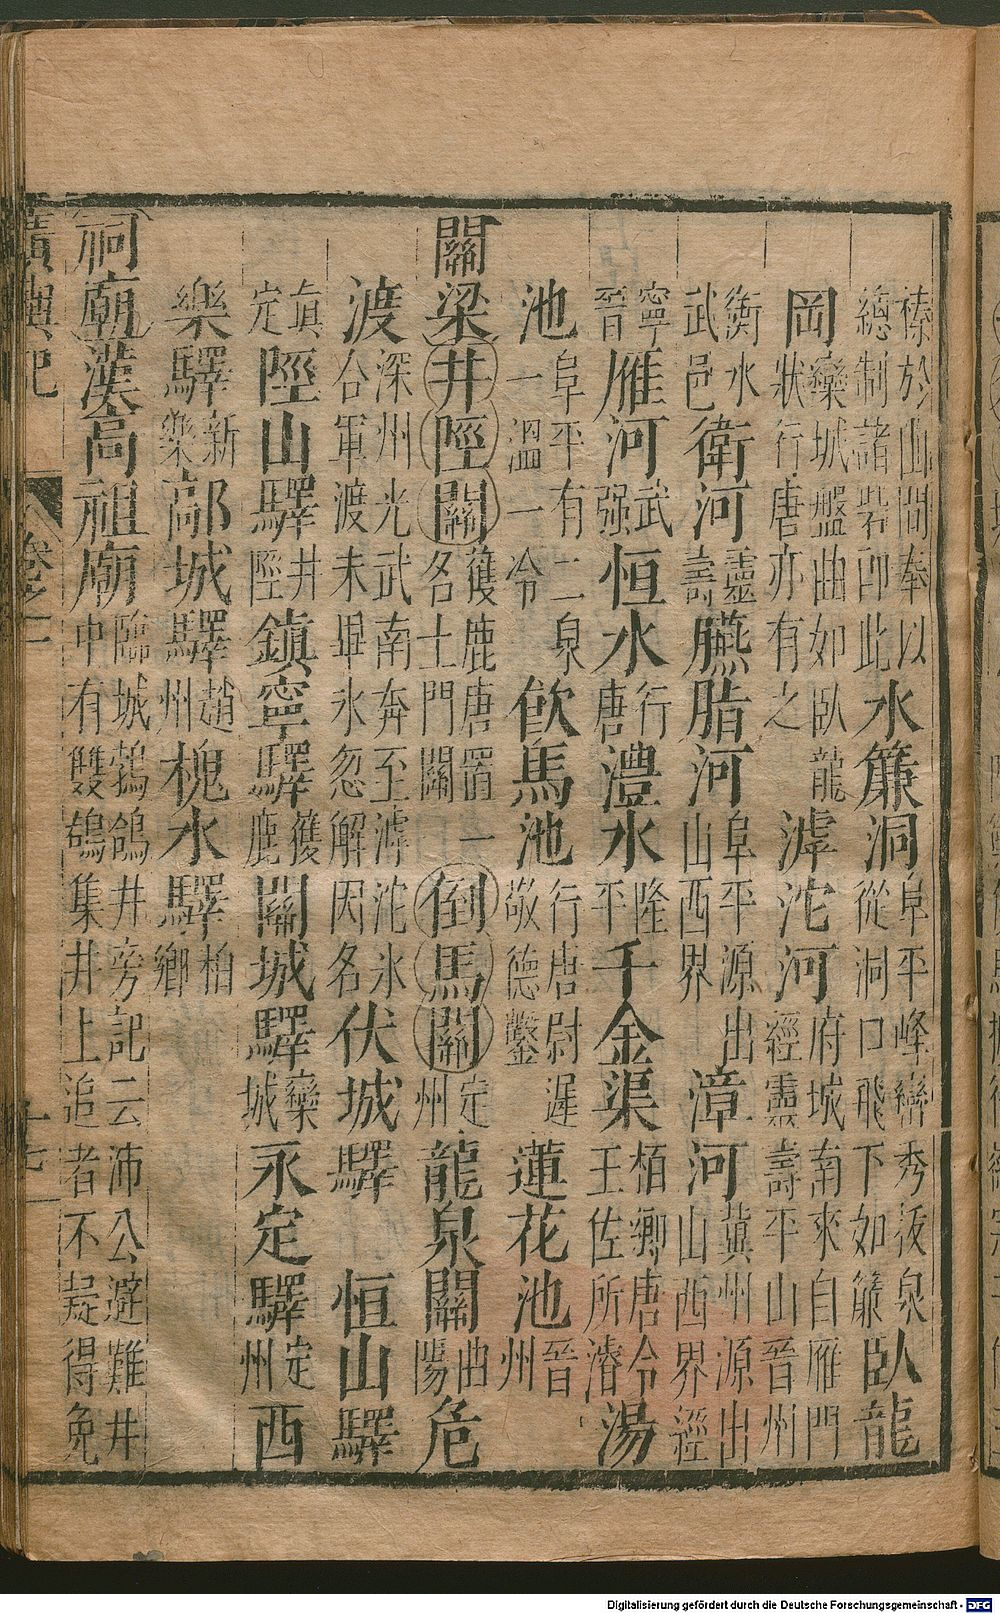 榛於山間奉以總制諸砦即此水簾洞阜平峰巒秀拔泉從洞口飛下如簾臥龍
岡欒城盤曲如臥龍狀行唐亦有之滹沱河府城南來自雁門經靈壽平山晉州
衡水武邑衛河靈壽臙脂河阜平源出山西界漳河冀州源出山西界經
寧晉雁河武强恒水行唐澧水隆平千金渠栢鄉唐令王佐所濬湯
池阜平有二泉一溫一冷飲馬池行唐尉遲敬德鑿蓮花池晉州
關梁井陘關獲鹿唐置一名土門關倒馬關定州龍泉關曲陽危
渡深州光武南奔至滹沱氷合軍渡未畢氷忽解因名伏城驛恒山驛
真定陘山驛井陘鎮寧驛獲鹿關城驛欒城永定驛定州西
樂驛新樂鄗城驛趙州槐水驛栢鄉
祠廟漢高祖廟臨城鵓鴿井旁記云沛公避難井中有雙鴿集井上追者不疑得免
廣輿記 卷之二 十七
Digitalisierung gefördert durch die Deutsche Forschungsgemeinschaft - DFG